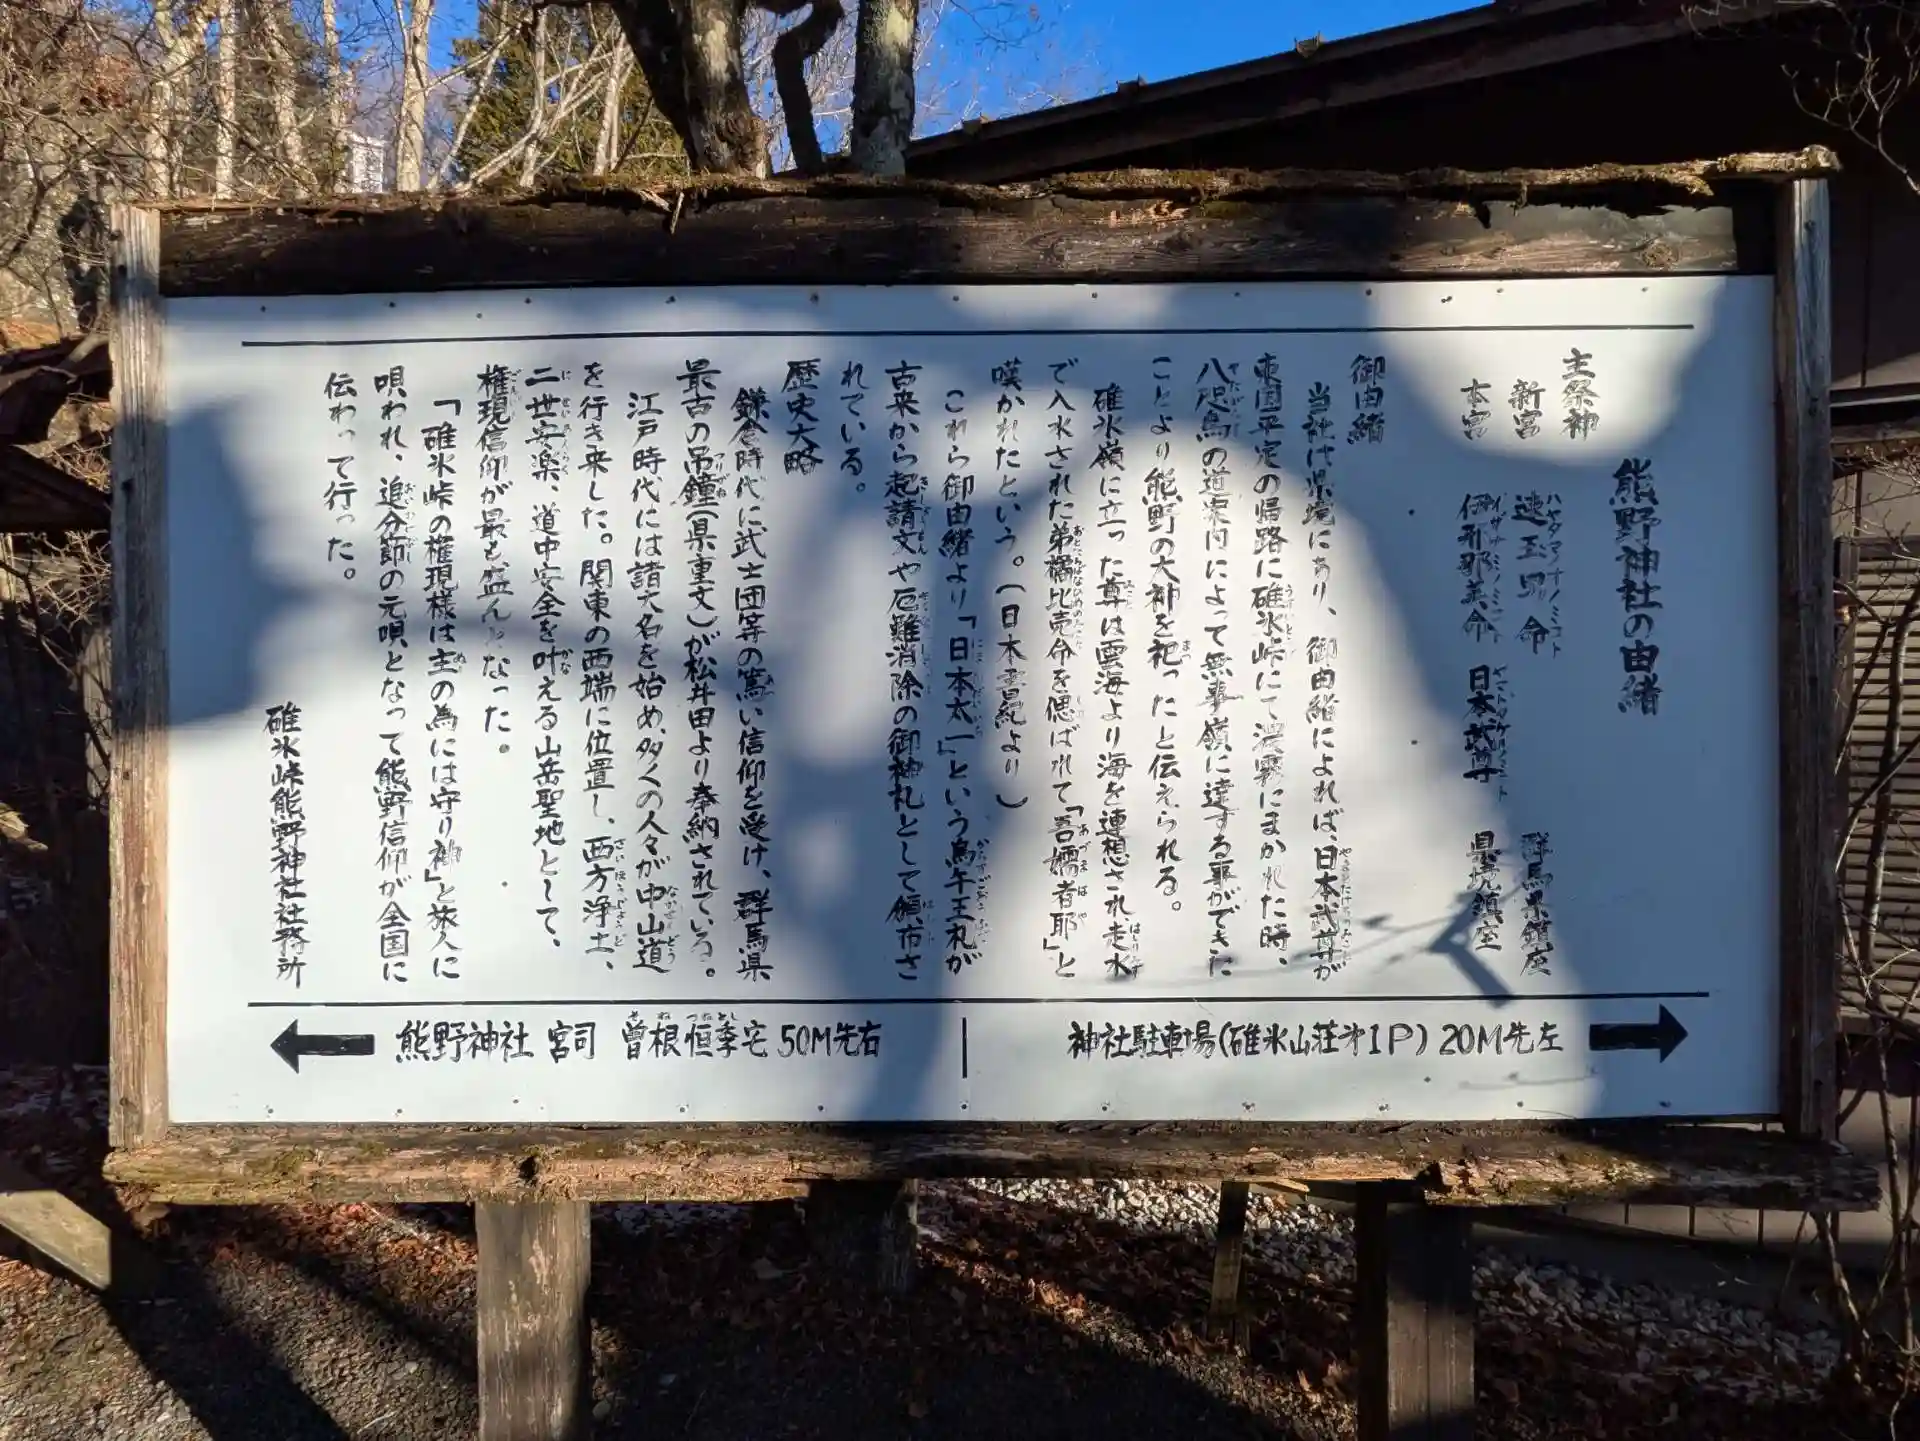 熊野神社の由緒
主祭神
新宮 速玉男命 群馬県鎮座
本宮 伊邪那美命 日本武尊 県境鎮座
御由緒
当社は県境にあり、御由緒によれば、日本武尊が
東国平定の帰路に碓氷峠にて濃霧にまかれた時、
八咫烏の道案内によって無事嶺に達する事ができた
ことより熊野の大神を祀ったと伝えられる。
碓氷嶺に立った尊は雲海より海を連想され走水
で入水された弟橘比売命を偲ばれて「吾嬬者耶」と
嘆かれたという。(日本書紀より)
これら御由緒より「日本太一」という烏午王札が
古来から起請文や厄難消除の御神札として頒布さ
れている。
歴史大略
鎌倉時代に武士団等の篤い信仰を受け、群馬県
最古の吊鐘(県重文)が松井田より奉納されている。
江戸時代には諸大名を始め、多くの人々が中山道
を行き来した。関東の西端に位置し、西方浄土、
二世安楽、道中安全を叶える山岳聖地として、
権現信仰が最も盛んとなった。
「碓氷峠の権現様は主の為には守り神」と旅人に
唄われ、追分節の元唄となって熊野信仰が全国に
伝わって行った。
碓氷峠熊野神社社務所
熊野神社 宮司 曽根恒季宅 50M先右
神社駐車場(碓氷山荘才1P) 20M先左